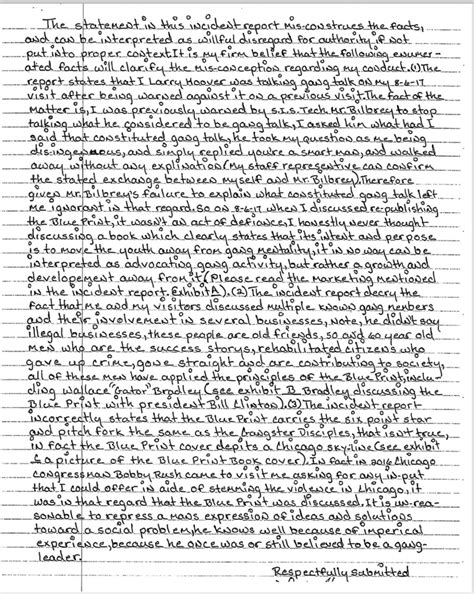 The statement in this incident report mis-construes the facts,
and can be interpreted as willful disregard for authority, if not
put into proper context. It is my firm belief that the following enumer-
ated facts will clarify the mis-conception regarding my conduct. (1) The
report states that I Larry Hoover was talking gang talk on my 8-6-17
visit after being warned against it on a previous visit. The fact of the
matter is, I was previously warned by S.I.S. Tech Mr. Bilbrey to stop
talking what he considered to be gang talk, I asked him what had I
said that constituted gang talk, he took my question as me being
disingenuous, and simply replied you're a smart man, and walked
away without any explination (my staff representive can confirm
the stated exchange between myself and Mr. Bilbrey). Therefore
given Mr. Bilbrey's failure to explain what constituted gang talk left
me ignorant in that regard. So on 8-6-17 when I discussed re-publishing
the Blue Print, it wasn't an act of defiance, I honestly never thought
discussing a book which clearly states that its intent and perpose
is to move the youth away from gang mentality, it in no way can be
interpreted as advocating gang activity, but rather a growth and
development away from it (Please read the marketing mentioned
in the incident report. Exhibit A). (2) The incident report decry the
fact that me and my visitors discussed multiple known gang members
and their involvement in several businesses, note, he didn't say
illegal businesses, these people are old friends, 50 and 60 year old
men who are the success storys, rehabilitated citizens who
gave up crime, gone straight and are contributing to society,
all of these men have applied the principles of the Blue Print, inclu-
ding Wallace "Gator" Bradley (see exhibit B Bradley discussing the
Blue Print with president Bill Clinton). (3) The incident report
incorrectly states that the Blue Print carries the six point star
and pitch fork the same as the Gangster Disciples, that isn't true,
in fact the Blue Print cover depits a Chicago sky-line (see exhibit
a picture of the Blue Print Book cover). In fact in 2016 Chicago
congressman Bobby Rush came to visit me asking for any in-put
that I could offer in aide of stemming the violence in Chicago, it
was in that regard that the Blue Print was discussed. It is un-rea-
sonable to repress a mans expression of ideas and solutions
toward a social problem, he knows well because of imperical
experience, because he once was or still believed to be a gang-
leader.
Respectfully Submitted